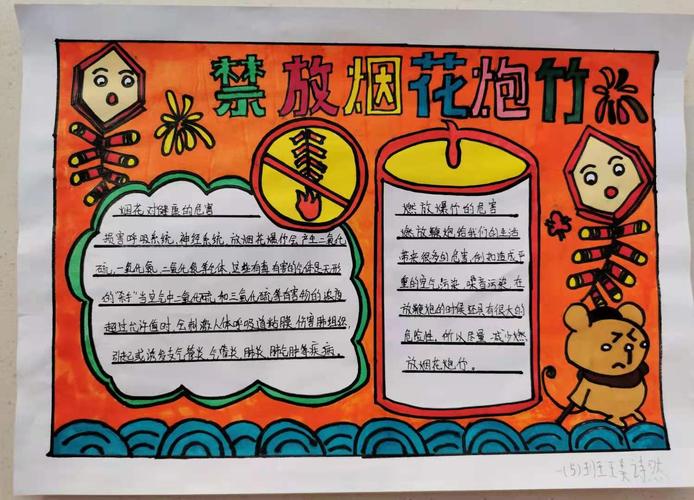 禁放烟花炮竹
烟花对健康的危害
损害呼吸系统、神经系统,放烟花爆竹会产生二氧化
硫、一氧化氮、二氧化氮等气体,这些有毒有害的气体是无形
的"杀手"当空气中二氧化硫和三氧化硫等有害物的浓度
超过允许值时,会刺激人体呼吸道粘膜,伤害肺组织,
引起或诱发支气管炎、气管炎、肺炎、肺气肿等疾病。
燃放爆竹的危害
燃放鞭炮给我们的生活
带来很多的危害,例如造成严
重的空气污染、噪音污染,在
放鞭炮的时候还具有很大的
危险性,所以尽量减少燃
放烟花炮竹。
一(5)班
诗然